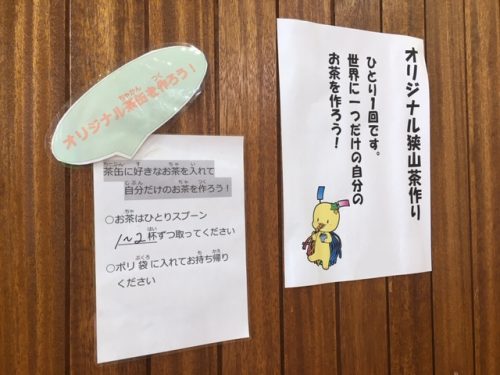 オリジナル茶缶を作ろう！
茶缶に好きなお茶を入れて
自分だけのお茶を作ろう！
○お茶はひとりスプーン
1～2杯ずつ取ってください
○ポリ袋に入れてお持ち帰り
ください
オリジナル狭山茶作り
ひとり1回です。
世界に一つだけの自分の
お茶を作ろう！